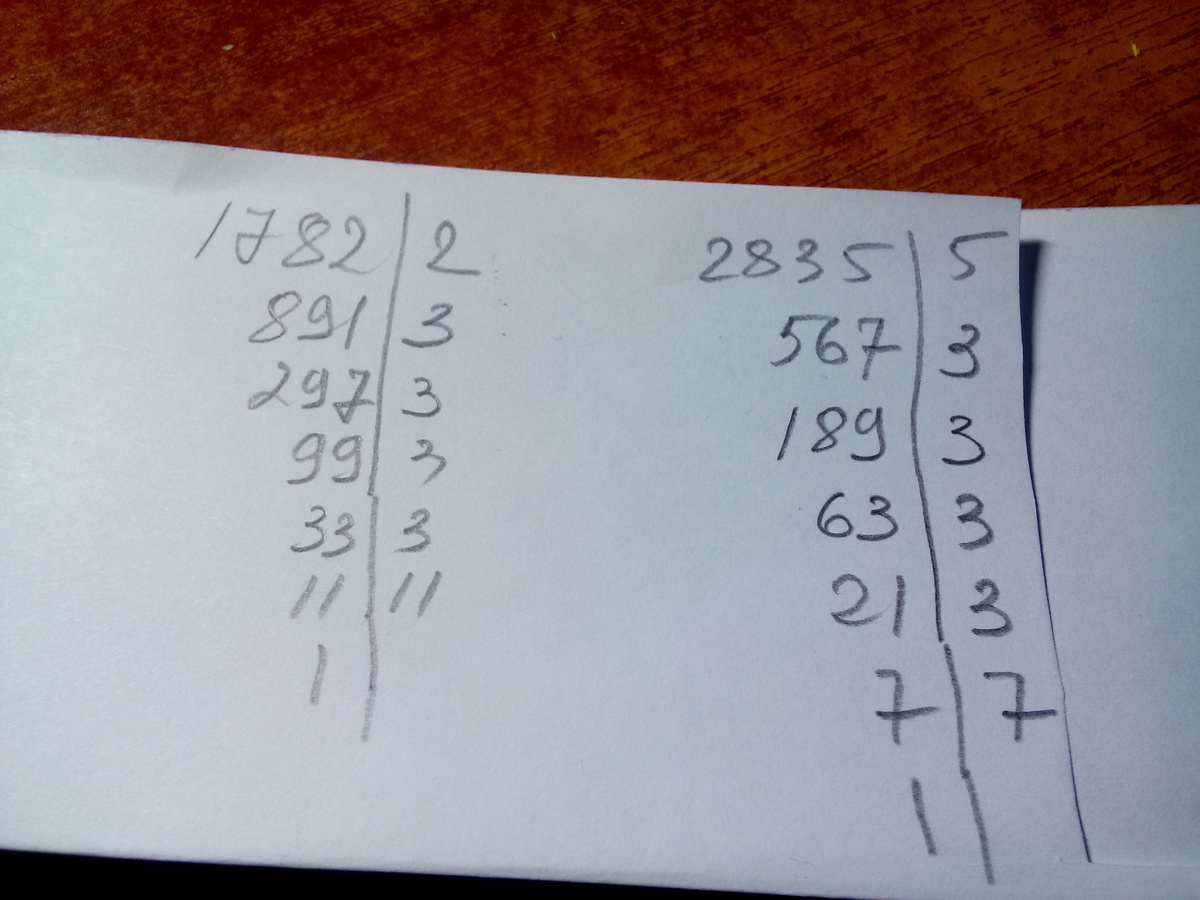 1782 | 2
891 | 3
297 | 3
99 | 3
33 | 3
11 | 11
1 |
2835 | 5
567 | 3
189 | 3
63 | 3
21 | 3
7 | 7
1 |